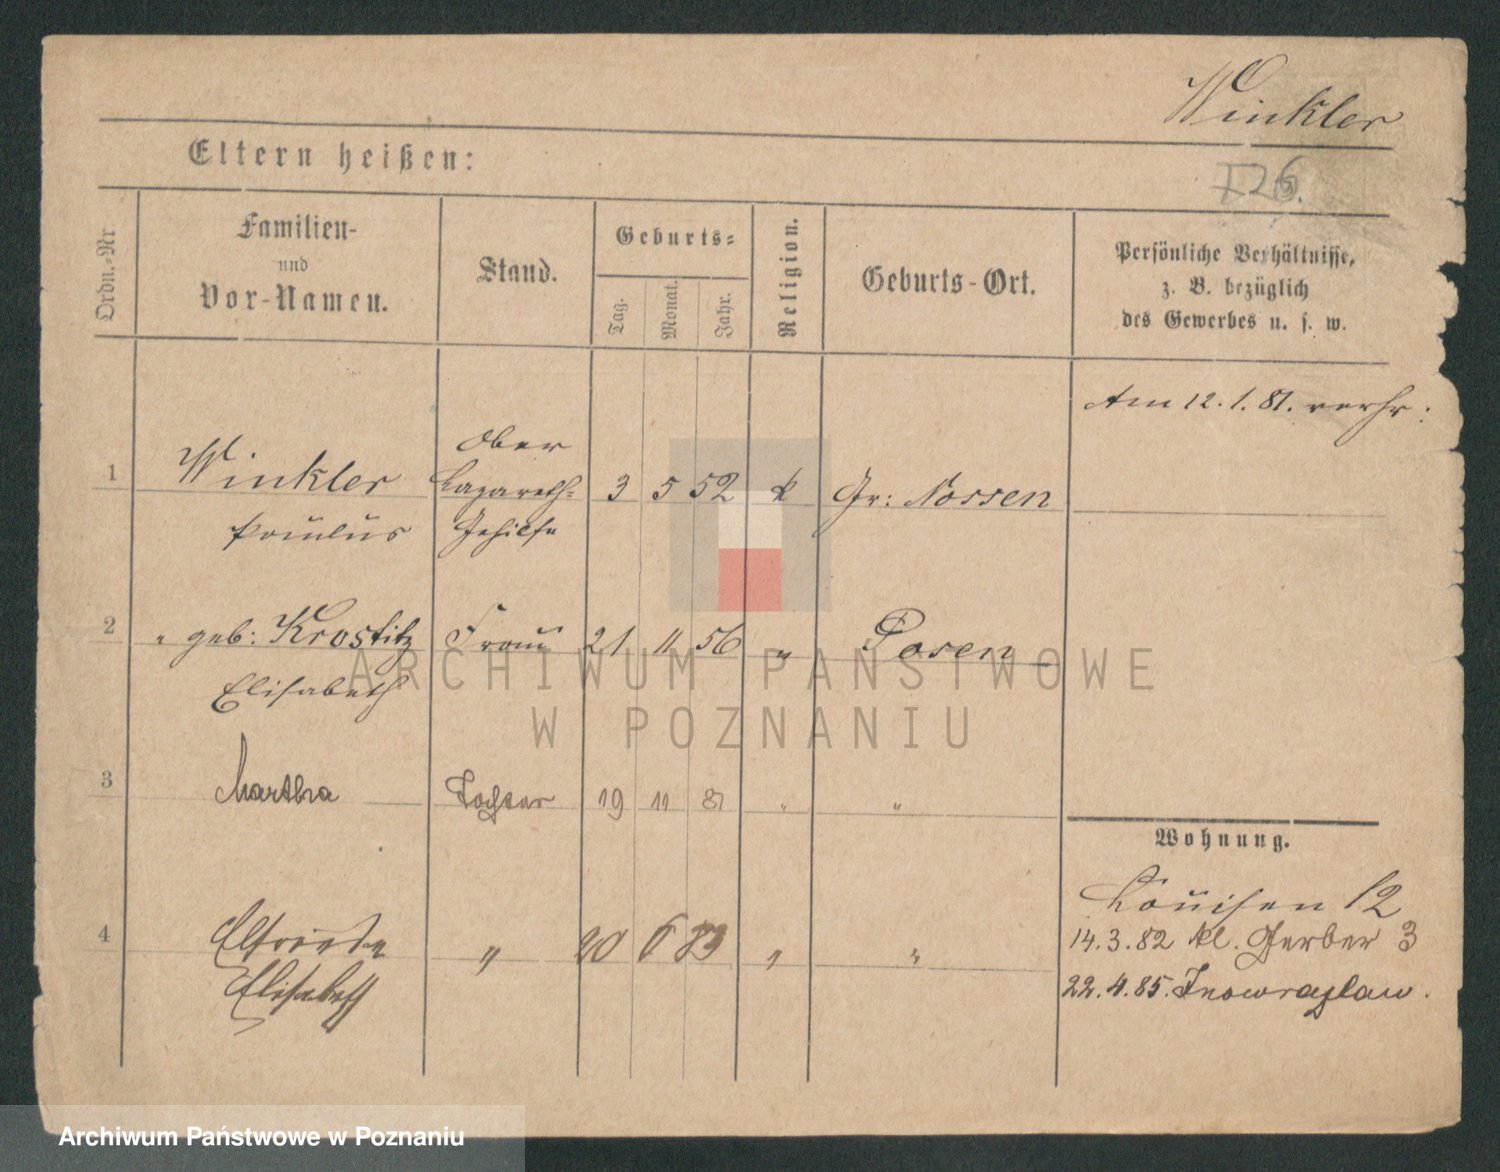 Winkler
Eltern heißen:
I 26.
Ordn.-Nr
Familien-
und
Vor-Namen.
Stand.
Geburts-
Tag.
Monat.
Jahr.
Religion.
Geburts-Ort.
Persönliche Verhältnisse,
z. B. bezüglich
des Gewerbes u. s. w.
Am 12. 1. 81. verh:
1 Winkler Ober 3 5 52 k Gr: Nossen
Paulus Lazareth-
Gehilfe
2 " geb: Krostitz Frau 21 11 56 " Posen
Elisabeth
3 Martha Tochter 19 11 81 " "
Wohnung.
Louisen 12
14. 3. 82 kl. Gerber 3
4 Elfriede " 20 6 83 " "
Elisabeth
22. 4. 85. Inowrazlaw.
ARCHIWUM PAŃSTWOWE
W POZNANIU
Archiwum Państwowe w Poznaniu